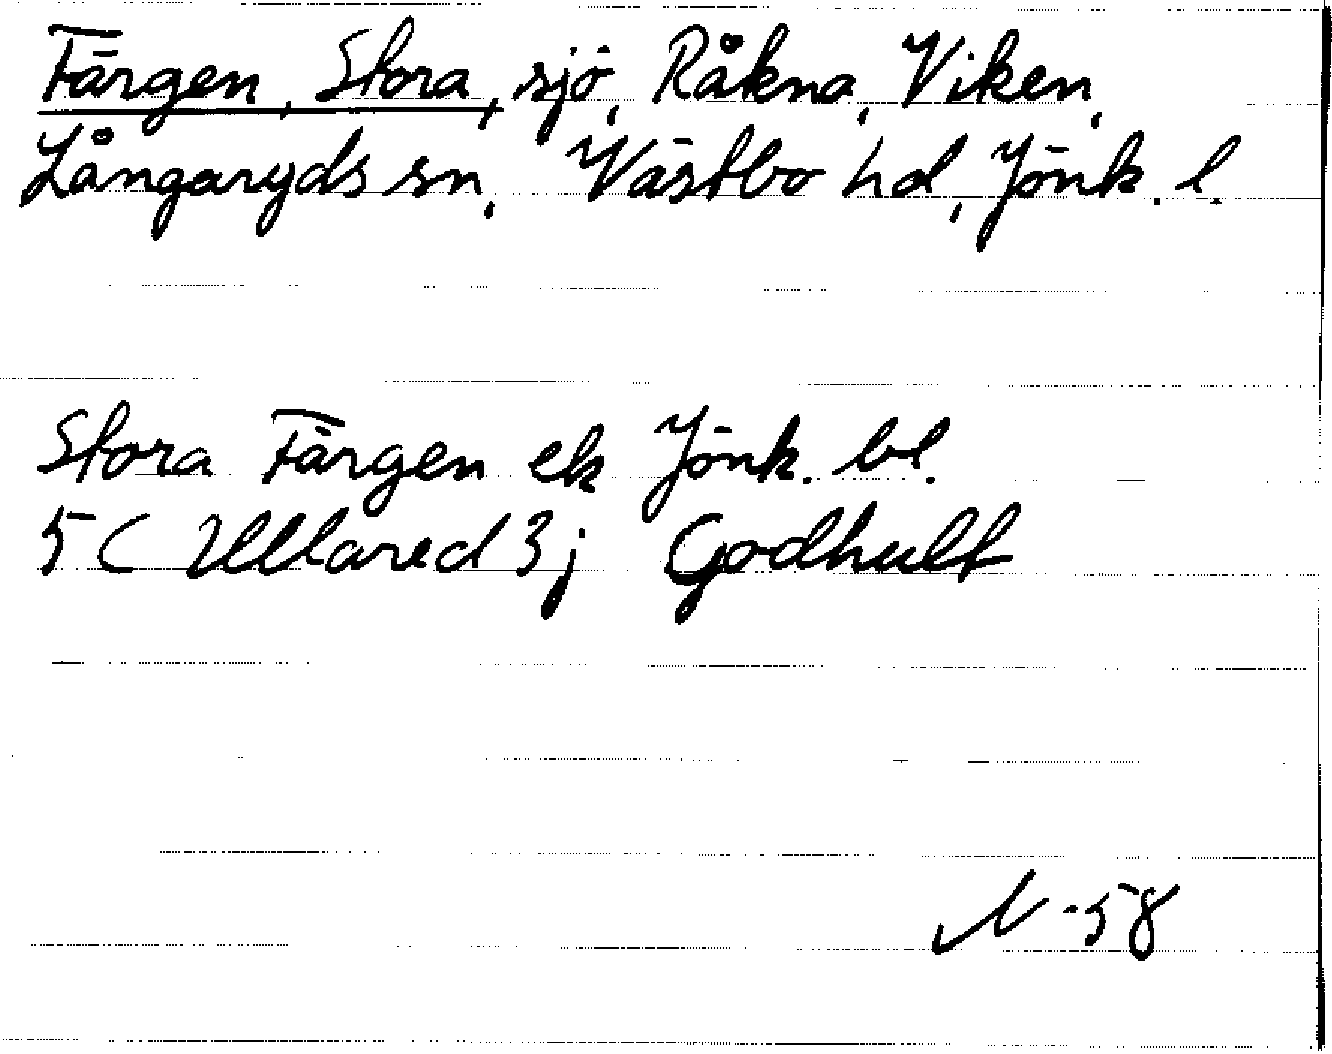 Färgen, Stora, sjö, Råkna, Viken,
Långaryds sn, Västbo hd, Jönk. l.
Stora Färgen ek Jönk. bl.
5 C Ullared 3 j Godhult
N -58